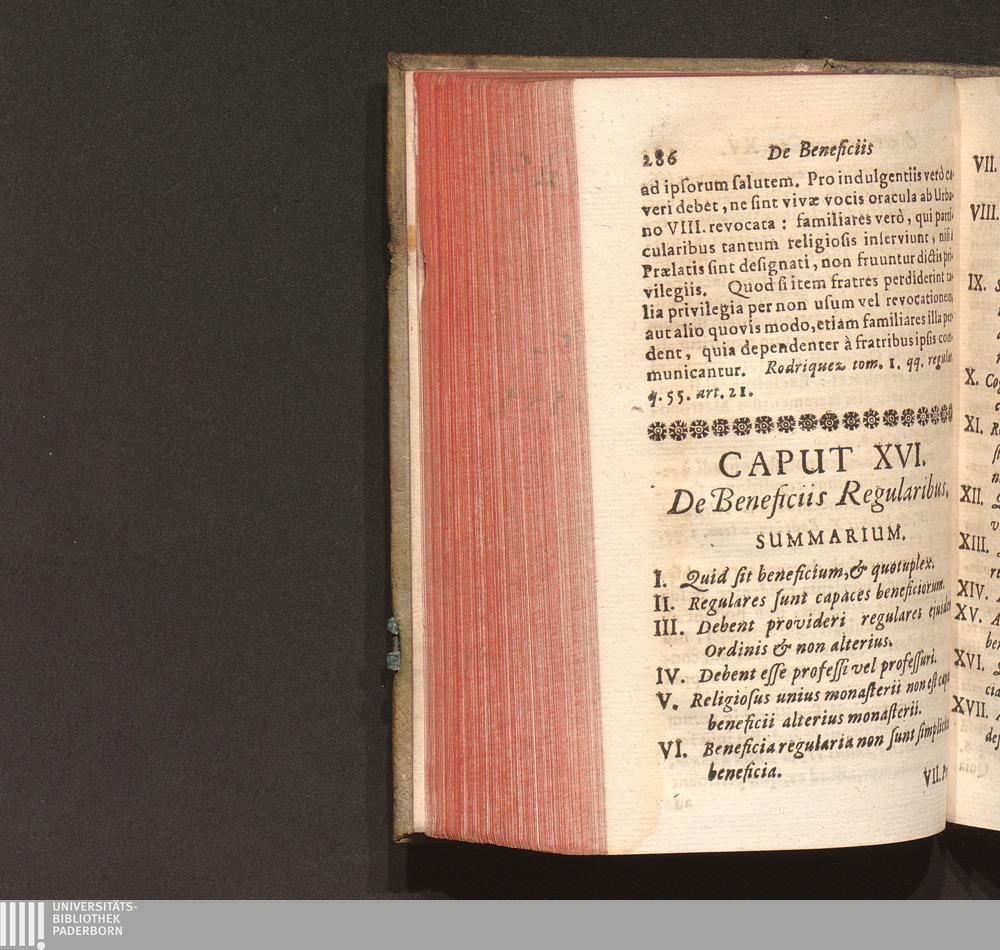 286 De Beneficiis
ad ipſorum ſalutem. Pro indulgentiis verò ca-
veri debet, ne ſint vivæ vocis oracula ab Urba-
no VIII. revocata: familiares verò, qui parti-
cularibus tantum religioſis inſerviunt, niſi à
Prælatis ſint deſignati, non fruuntur dictis pri-
vilegiis. Quod ſi item fratres perdiderint ta-
lia privilegia per non uſum vel revocationem,
aut alio quovis modo, etiam familiares illa per-
dent, quia dependenter à fratribus ipſis com-
municantur. Rodriquez tom. 1. qq. regular.
q. 55. art. 21.
CAPUT XVI.
De Beneficiis Regularibus.
SUMMARIUM.
I. Quid ſit beneficium, & quotuplex.
II. Regulares ſunt capaces beneficiorum.
III. Debent provideri regulares ejuſdem
Ordinis & non alterius.
IV. Debent eſſe profeſſi vel profeſſuri.
V. Religioſus unius monaſterii non eſt capax
beneficii alterius monaſterii.
VI. Beneficia regularia non ſunt ſimplicia
beneficia.
VII.
VII.
VIII.
IX.
X.
XI.
XII.
XIII.
XIV.
XV.
XVI.
XVII.
UNIVERSITÄTS-
BIBLIOTHEK
PADERBORN